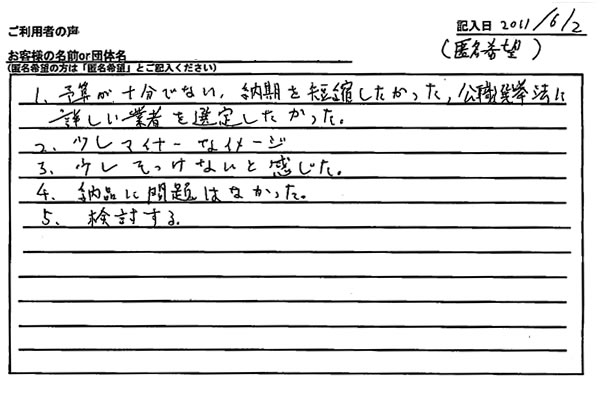 ご利用者の声
記入日 2011/6/2
お客様の名前or団体名
(匿名希望)
(匿名希望の方は「匿名希望」とご記入ください)
1、予算が十分でない、納期を短縮したかった、公職選挙法に
詳しい業者を選定したかった。
2、少しマイナーなイメージ
3、少しそっけないと感じた。
4、納品に問題はなかった。
5、検討する